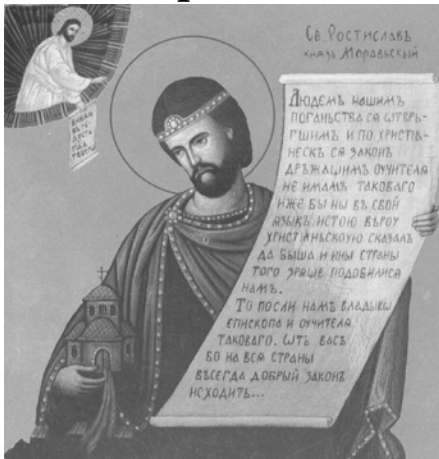 Св. Ростиславъ
князь Моравьскый
Людемъ нашимъ
поганьства сѧ ѿтвьр-
гшимъ и по христіа-
нескъ сѧ законъ
дръжащимъ оучителѧ
не имамъ таковаго
иже бы ны въ свой
ѧзыкъ истою вѣроу
христіаньскоую сказалъ
да быша и ины страны
того зрѧще подобилисѧ
намъ.
То посли намъ владыко
епископа и оучителѧ
таковаго. ѿтъ васъ
бо на всѧ страны
вьсегда добрый законъ
исходить...